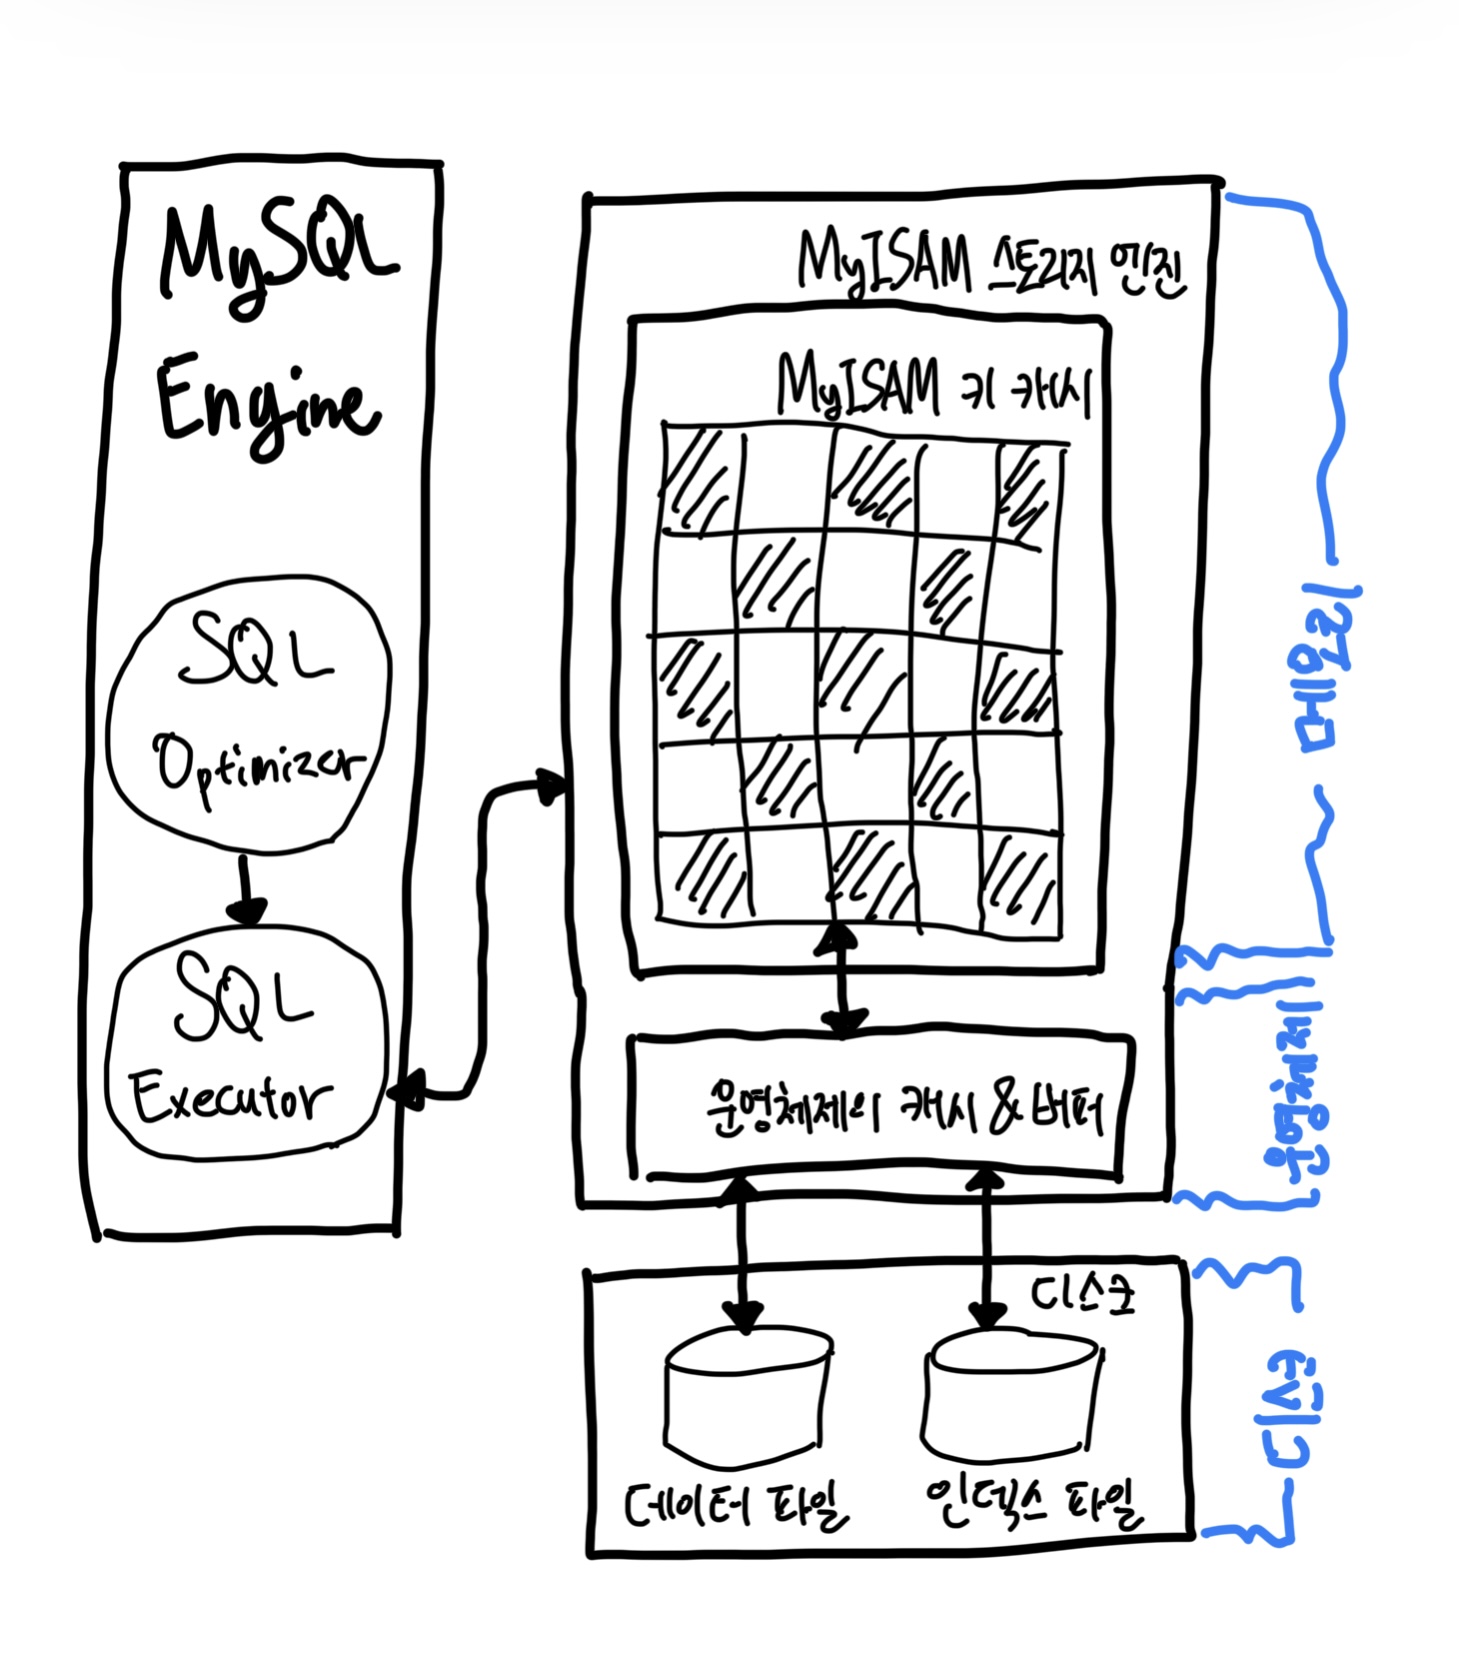 MySQL
Engine
SQL
Optimizer
SQL
Executor
MyISAM 스토리지 엔진
MyISAM 키 캐시
운영체제의 캐시 & 버퍼
디스크
데이터 파일
인덱스 파일
메모리
운영체제
디스크